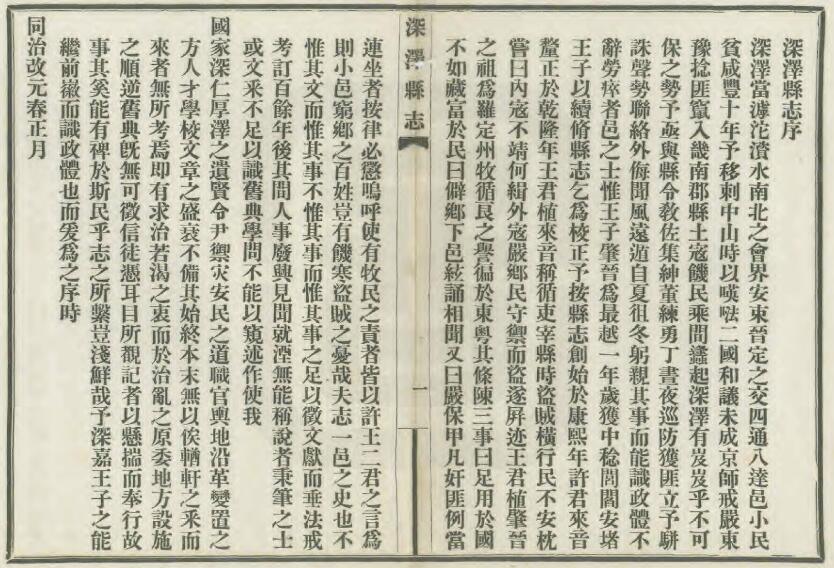 深澤縣志序
深澤當滹沱濱水南北之會界安束晉定之交四通八達邑小民
貧咸豐十年予移刺中山時以𠸄𠸿二國和議未成京師戒嚴東
豫捻匪竄入畿南郡縣土寇饑民乘間蠭起深澤有岌岌乎不可
保之勢予亟與縣令敎佐集紳董練勇丁晝夜巡防獲匪立予駢
誅聲勢聯絡外侮聞風遠遁自夏徂冬躬親其事而能識政體不
辭勞瘁者邑之士惟王子肇晉爲最越一年歲獲中稔閭閻安堵
王子以續脩縣志乞爲校正予按縣志創始於康熙年許君來音
釐正於乾隆年王君植來音稱循吏宰縣時盜賊橫行民不安枕
嘗曰内寇不靖何緝外寇嚴鄉民守禦而盜遂屏迹王君植肇晉
之祖爲羅定州牧循良之譽徧於東粤其條陳三事曰足用於國
不如藏富於民曰僻鄉下邑絃誦相聞又曰嚴保甲凡奸匪例當
深澤縣志
一
連坐者按律必懲嗚呼使有牧民之責者皆以許王二君之言爲
則小邑窮鄉之百姓豈有饑寒盜賊之憂哉夫志一邑之史也不
惟其文而惟其事不惟其事而惟其事之足以徵文獻而垂法戒
考訂百餘年後其間人事廢興見聞就湮無能稱說者秉筆之士
或文采不足以識舊典學問不能以窺述作使我
國家深仁厚澤之遺賢令尹禦災安民之道職官輿地沿革變置之
方人才學校文章之盛衰不備其始終本末無以俟輶軒之釆而
來者無所考焉即有求治若渴之衷而於治亂之原委地方設施
之順逆舊典旣無可徵信徒憑耳目所觀記者以懸揣而奉行故
事其奚能有裨於斯民乎志之所繫豈淺鮮哉予深嘉王子之能
繼前徽而識政體也而爰爲之序時
同治改元春正月